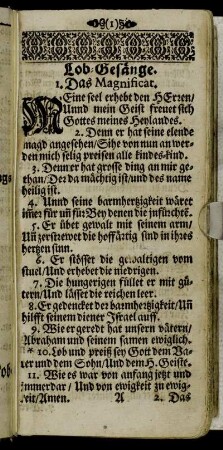 (1)
Lob-Gesänge.
1. Das Magnificat.
MEine seel erhebt den HErren/
Unnd mein Geist freuet sich
Gottes meines Heylandes.
2. Denn er hat seine elende
magd angesehen/Sihe von nun an wer-
den mich selig preisen alle kindes-kind.
3. Denn er hat grosse ding an mir ge-
than/Der da mächtig ist/und des name
heilig ist.
4. Unnd seine barmhertzigkeit wäret
immer für uñ für Bey denen die jn fürchtẽ.
5. Er übet gewalt mit seinem arm/
Uñ zerstrewet die hoffärtig sind in ihres
hertzen sinn.
6. Er stösset die gewaltigen vom
stuel/Und erhebet die niedrigen.
7. Die hungerigen füllet er mit gü-
tern/Und lässet die reichen leer.
8. Er gedencket der barmhertzigkeit/Uñ
hilfft seinem diener Israel auff.
9. Wie er geredt hat unsern vätern/
Abraham und seinem samen ewiglich.
* 10. Lob und preiß sey Gott dem Va-
ter und dem Sohn/Und dem H. Geiste.
11. Wie es war von anfang jetzt und
immerdar/Und von ewigkeit zu ewig-
keit/Amen. A 2. Das